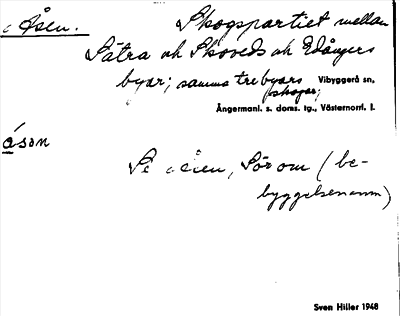 i Åsen. Skogspartiet mellan
Sätra och Skoveds och Edångers
byar; samma tre byars Vibyggerå sn,
skogar;
Ångermanl. s. doms. tg., Västernorrl. l.
åsən
Se Åsen, Sör om (be-
byggelsenamn)
Sven Hiller 1948